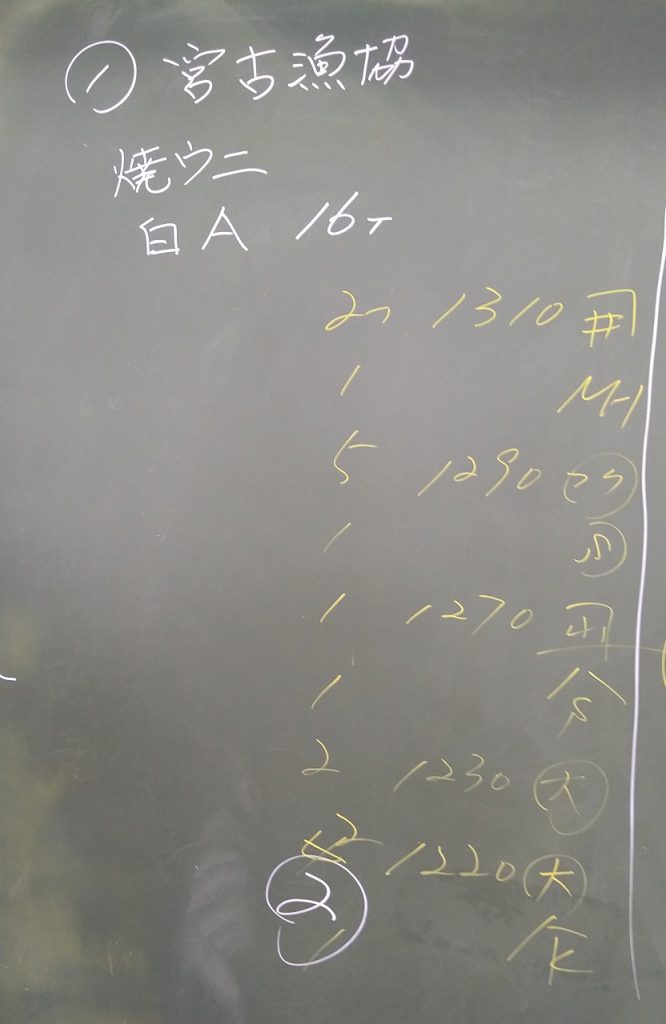 ① 宮古漁協
焼ウニ
白 A 16T
2コ 1310 井
1 MH
5 1290
1
1 1270
1
2 1230 大
2 1220 大
②
1 K